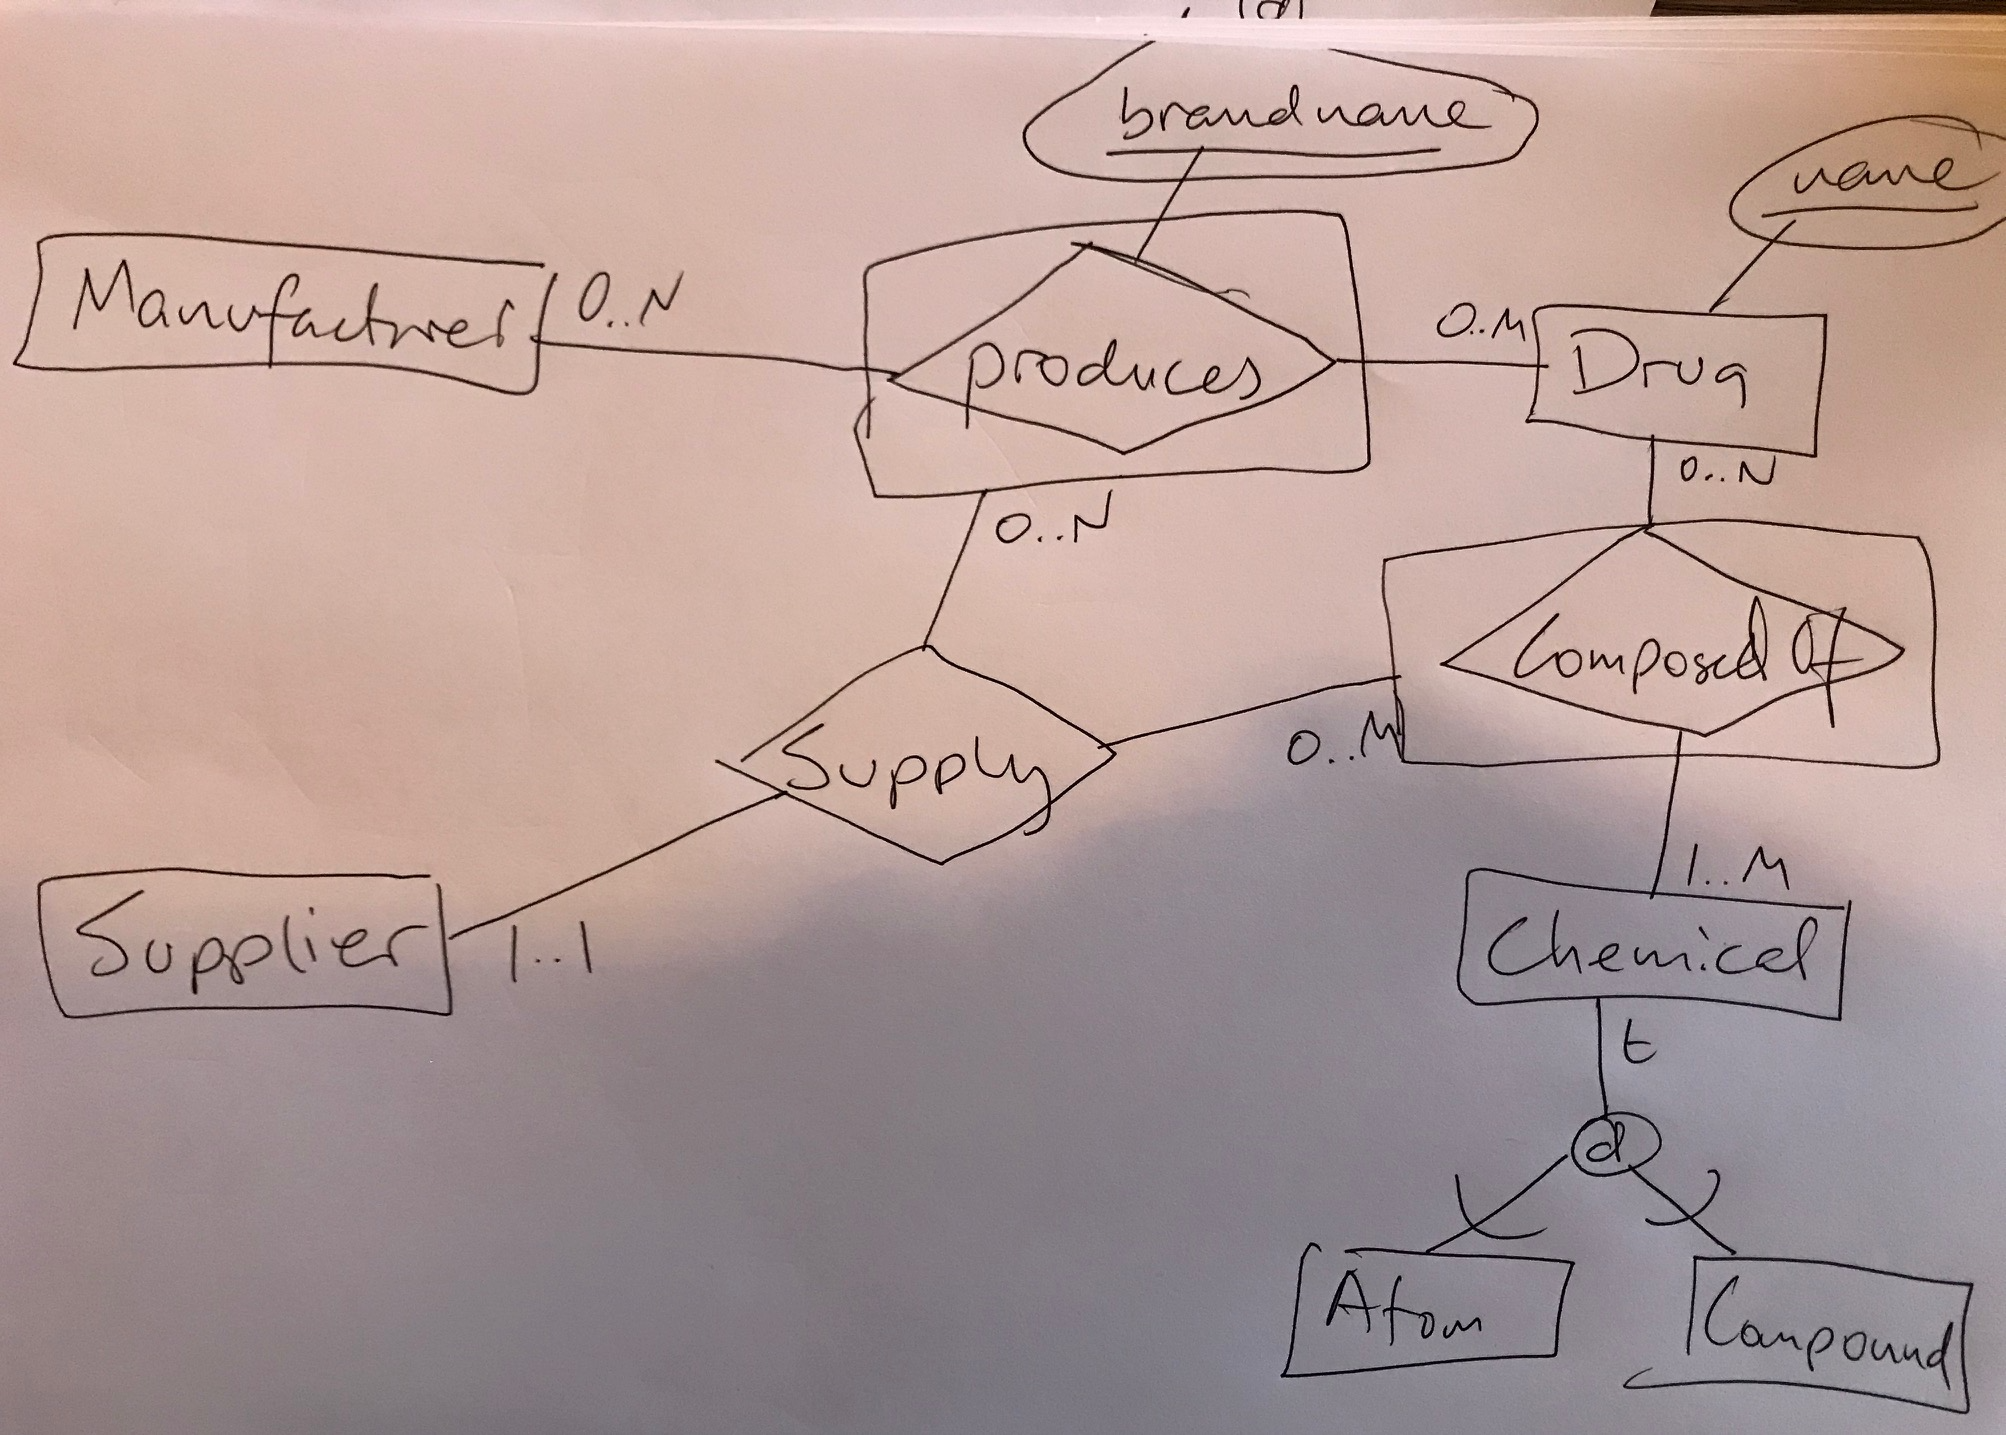 brandname
name
Manufacturer
0..N
produces
0..M
Drug
0..N
0..N
Composed Of
Supply
0..M
1..M
Supplier
1..1
Chemical
t
d
Atom
Compound